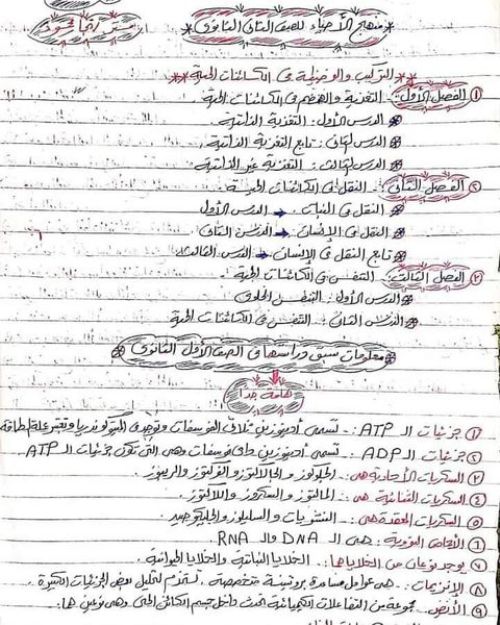 منهج الأحياء للصف الثانى الثانوى
مستر / نجا محمود
التركيب والوظيفة فى الكائنات الحية
① الفصل الأول :- التغذية والهضم فى الكائنات الحية
الدرس الأول : التغذية الذاتية
الدرس الثانى : تابع التغذية الذاتية
الدرس الثالث : التغذية غير الذاتية
② الفصل الثانى :- النقل فى الكائنات الحية
النقل فى النبات ← الدرس الأول
النقل فى الإنسان ← الدرس الثانى
تابع النقل فى الإنسان ← الدرس الثالث
③ الفصل الثالث :- التنفس فى الكائنات الحية
الدرس الأول : التنفس الخلوى
الدرس الثانى : التنفس فى الكائنات الحية
معلومات سبق دراستها فى الصف الأول الثانوى
هامة جدا
① جزيئات الـ ATP :- تسمى أدينوزين ثلاثى الفوسفات وتوجد فى الميتوكوندريا وتعتبر عملة الطاقة
② جزيئات الـ ADP :- تسمى أدينوزين ثنائى فوسفات وهى التى تكون جزيئات الـ ATP
③ السكريات الأحادية هى :- الجلوكوز والجالاكتوز والفركتوز والريبوز .
④ السكريات الثنائية هى :- المالتوز والسكروز واللاكتوز .
⑤ السكريات المعقدة هى :- النشويات والسليلوز والجليكوجين .
⑥ الأحماض النووية :- هى الـ DNA والـ RNA
⑦ يوجد نوعان من الخلايا هما :- الخلايا النباتية والخلايا الحيوانية
⑧ الإنزيمات :- هى عوامل مساعدة بروتينية متخصصة تستخدم لتحليل بعض الجزيئات الكبيرة .
⑨ الأيض :- مجموعة من التفاعلات الكيميائية تحدث داخل جسم الكائن الحى وهى نوعين هما :